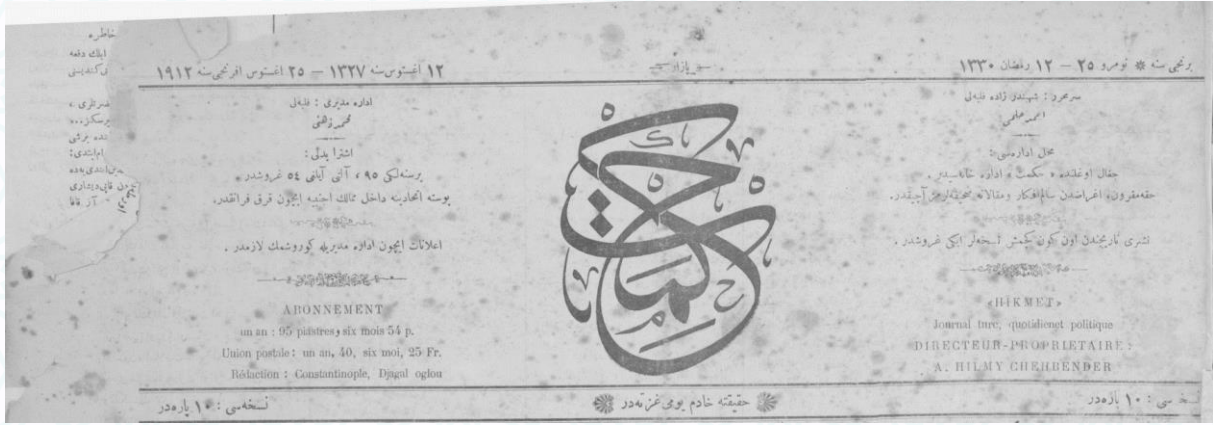 برنجى سنه ❋ نومرو ٢٥ – ١٢ رمضان ١٣٣٠
بازار
١٢ اغستوس سنه ١٣٢٧ – ٢٥ اغستوس افرنجى سنه ١٩١٢
سر محرر : شهبندر زاده فلبه‌لى
احمد حلمى
محل اداره‌سى :
جغال اوغلنده « حكمت » اداره خانه‌سيدر .
حقه مقرون، اغراضدن سالم افكار ومقالاته صحيفه‌لرمز آچيقدر.
نشرى تاريخندن اون كون كچمش نسخه‌لر ايكى غروشدر .
«HIKMET»
Journal turc, quotidienet politique
DIRECTEUR-PROPRIETAIRE :
A. HILMY CHEHBENDER
حكمت
اداره مديرى : فلبه‌لى
محمد زهنى
اشترا بدلى :
برسنه‌لكى ٩٥ ، آلتى آيلغى ٥٤ غروشدر .
پوسته اتحادينه داخل ممالك اجنبيه ايچون قرق فرانقدر.
اعلانات ايچون اداره مديريله كوروشمك لازمدر .
ABONNEMENT
un an : 95 piastres, six mois 54 p.
Union postale : un an, 40, six moi, 25 Fr.
Rédaction : Constantinople, Djagal oglou
سى : ١٠ پاره‌در
حقيقته خادم يومى غزته‌در
نسخه‌سى : ١٠ پاره‌در
خاطره
ايلك دفعه